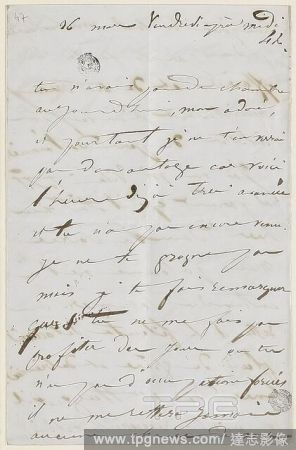 47
26 mars Vendredi après midi
4h.
tu n'avais pas de chambre
aujourd'hui, mon adoré,
et pourtant je ne t'en verrai
pas davantage car voici
l'heure déjà très avancée
et tu n'es pas encore venu.
je ne te grogne pas
mais je te fais remarquer
que si tu ne me fais pas
profiter des jours où tu
n'as pas d'occupations forcées
il ne me restera jamais
aucun
TPG
www.tpgnews.com/ 達志影像